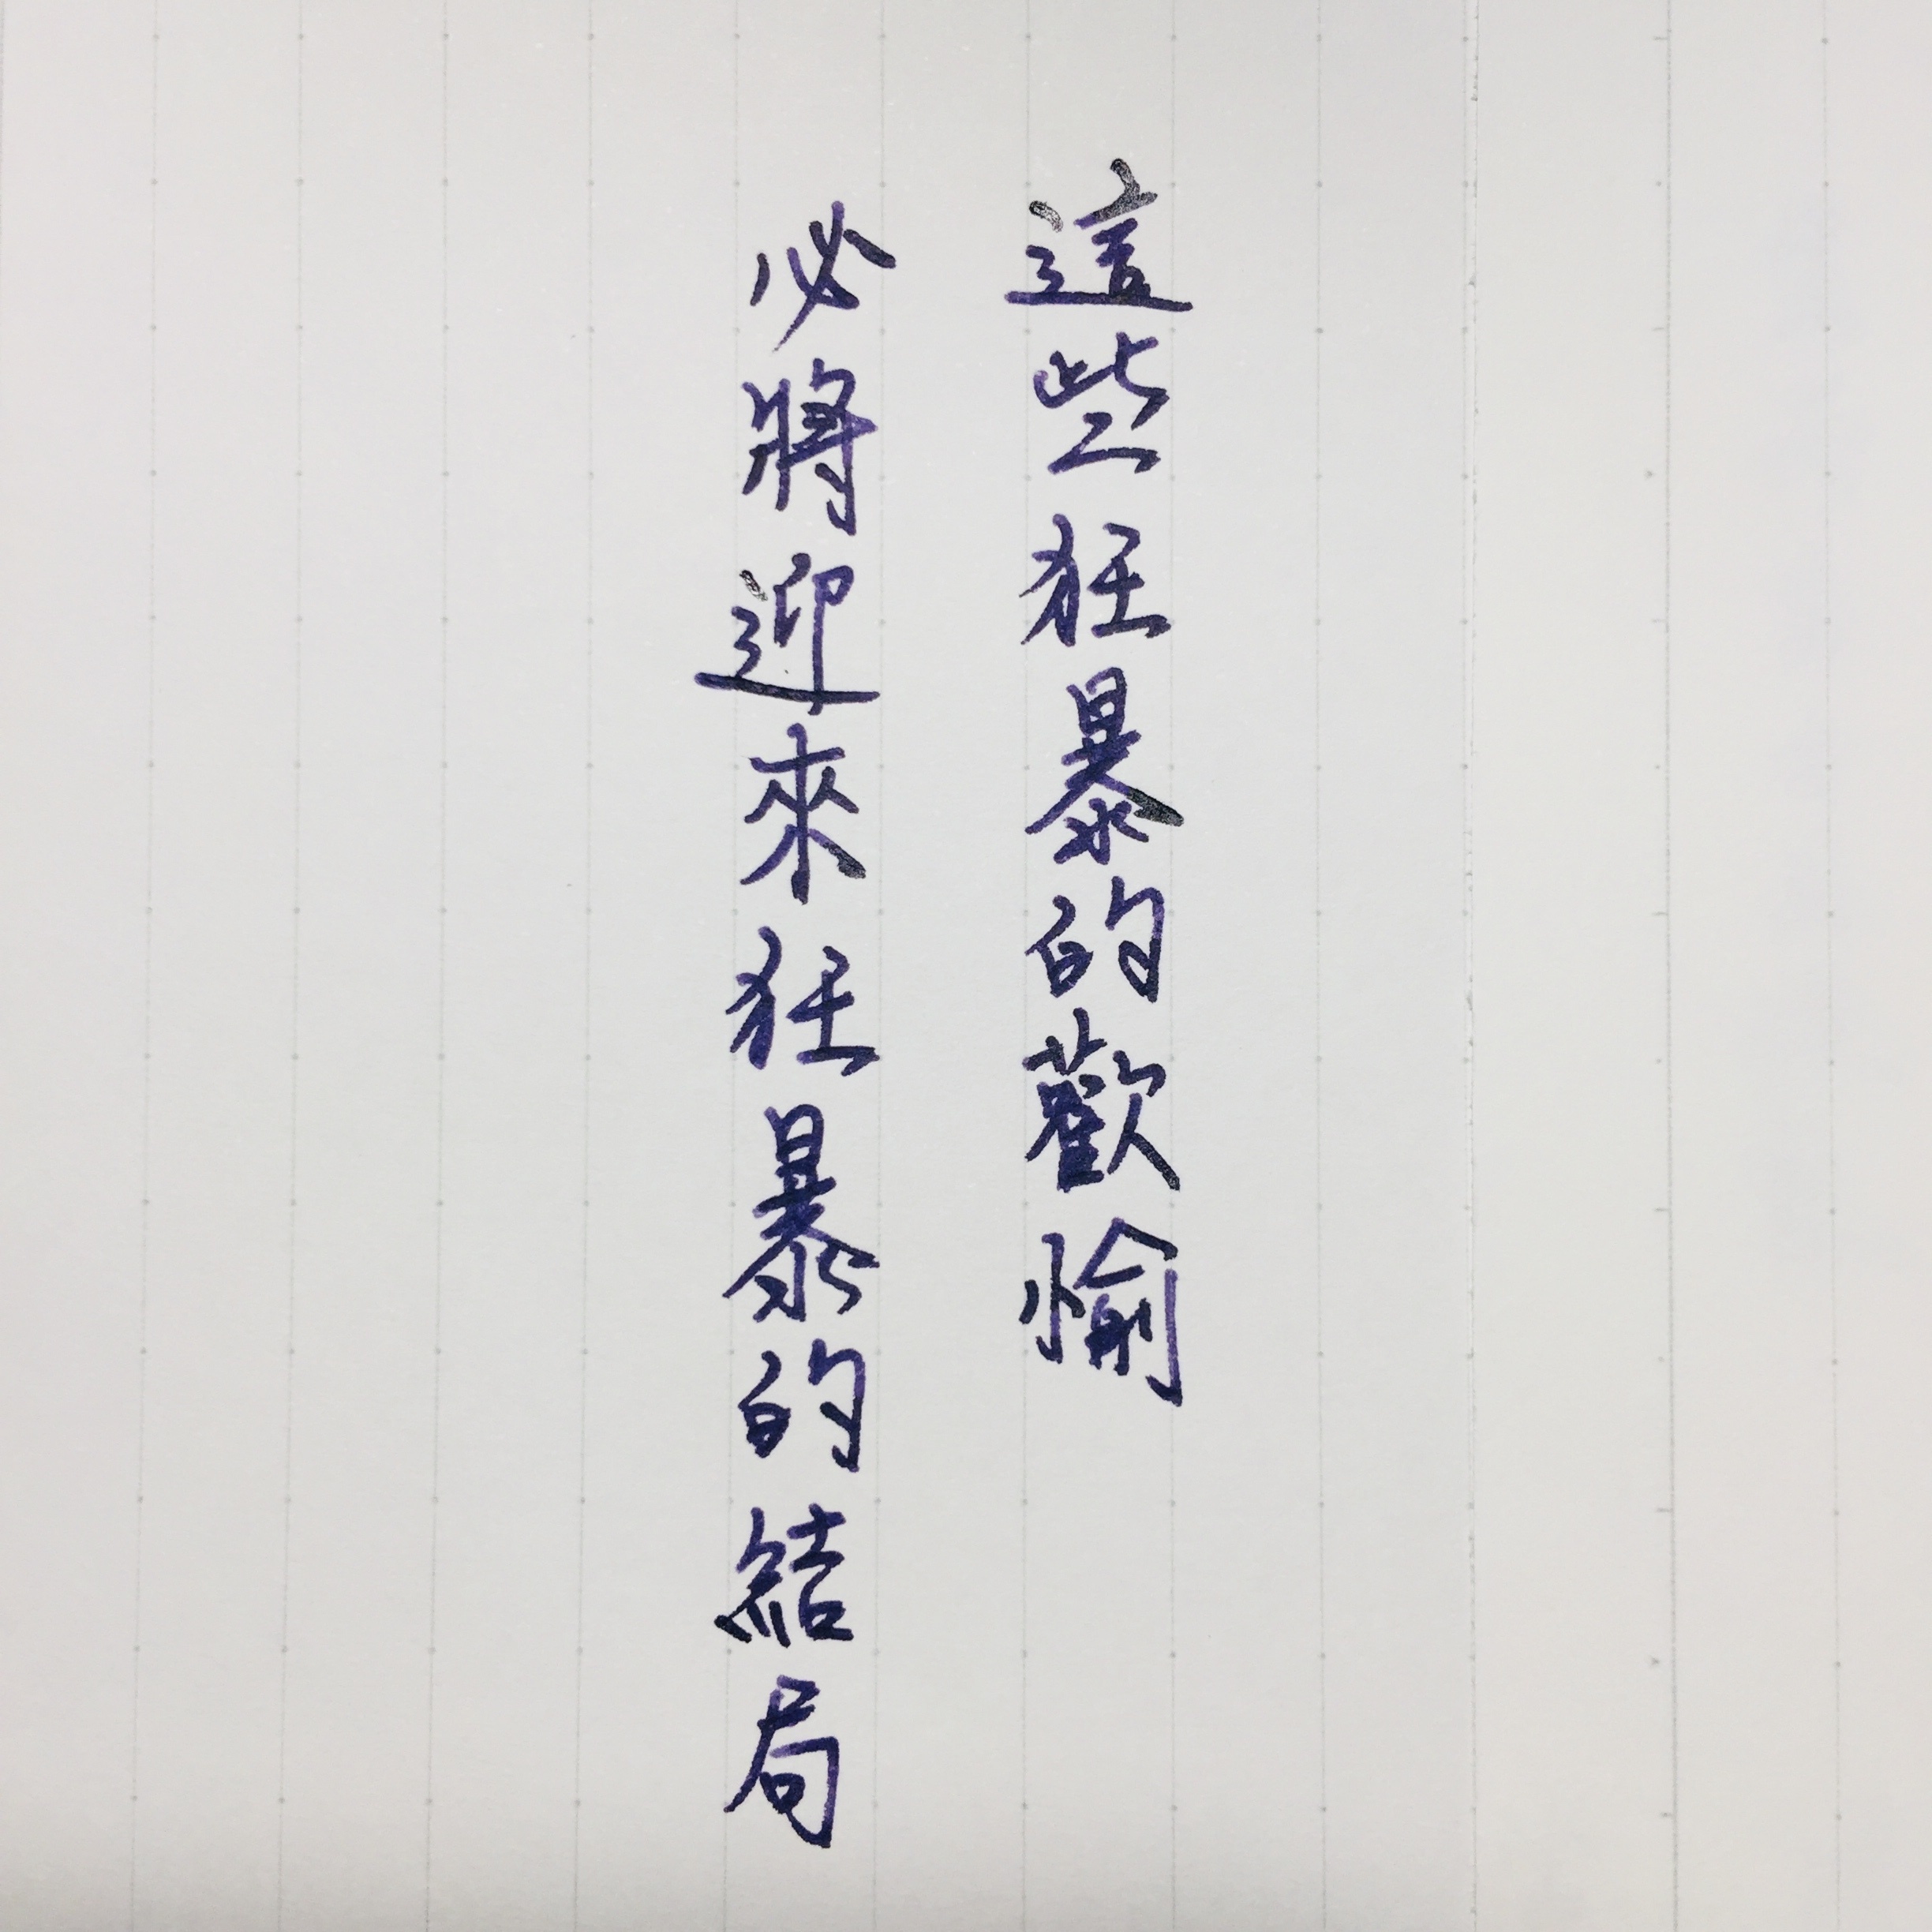 這些狂暴的歡愉
必將迎來狂暴的結局